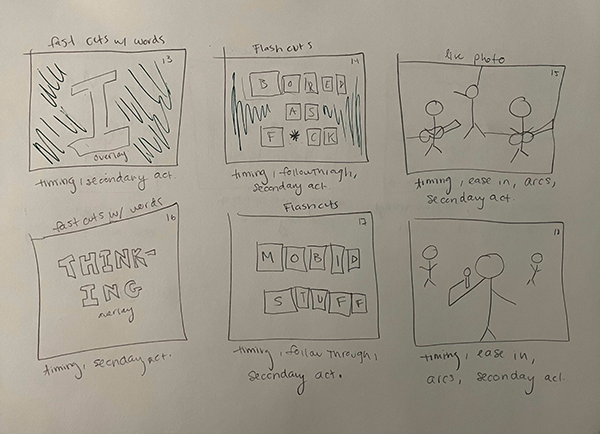 fast cuts w/ words
13
I
overlay
timing, secondary act.
Flash cuts
14
BORED
AS
F*CK
timing, followthrough,
secondary act.
live photo
15
timing, ease in, arcs,
secondary act.
fast cuts w/ words
16
THINK-
ING
overlay
timing, secondary act.
Flashcuts
17
MOBID
STUFF
timing, follow through,
secondary act.
18
timing, ease in,
arcs, secondary act.